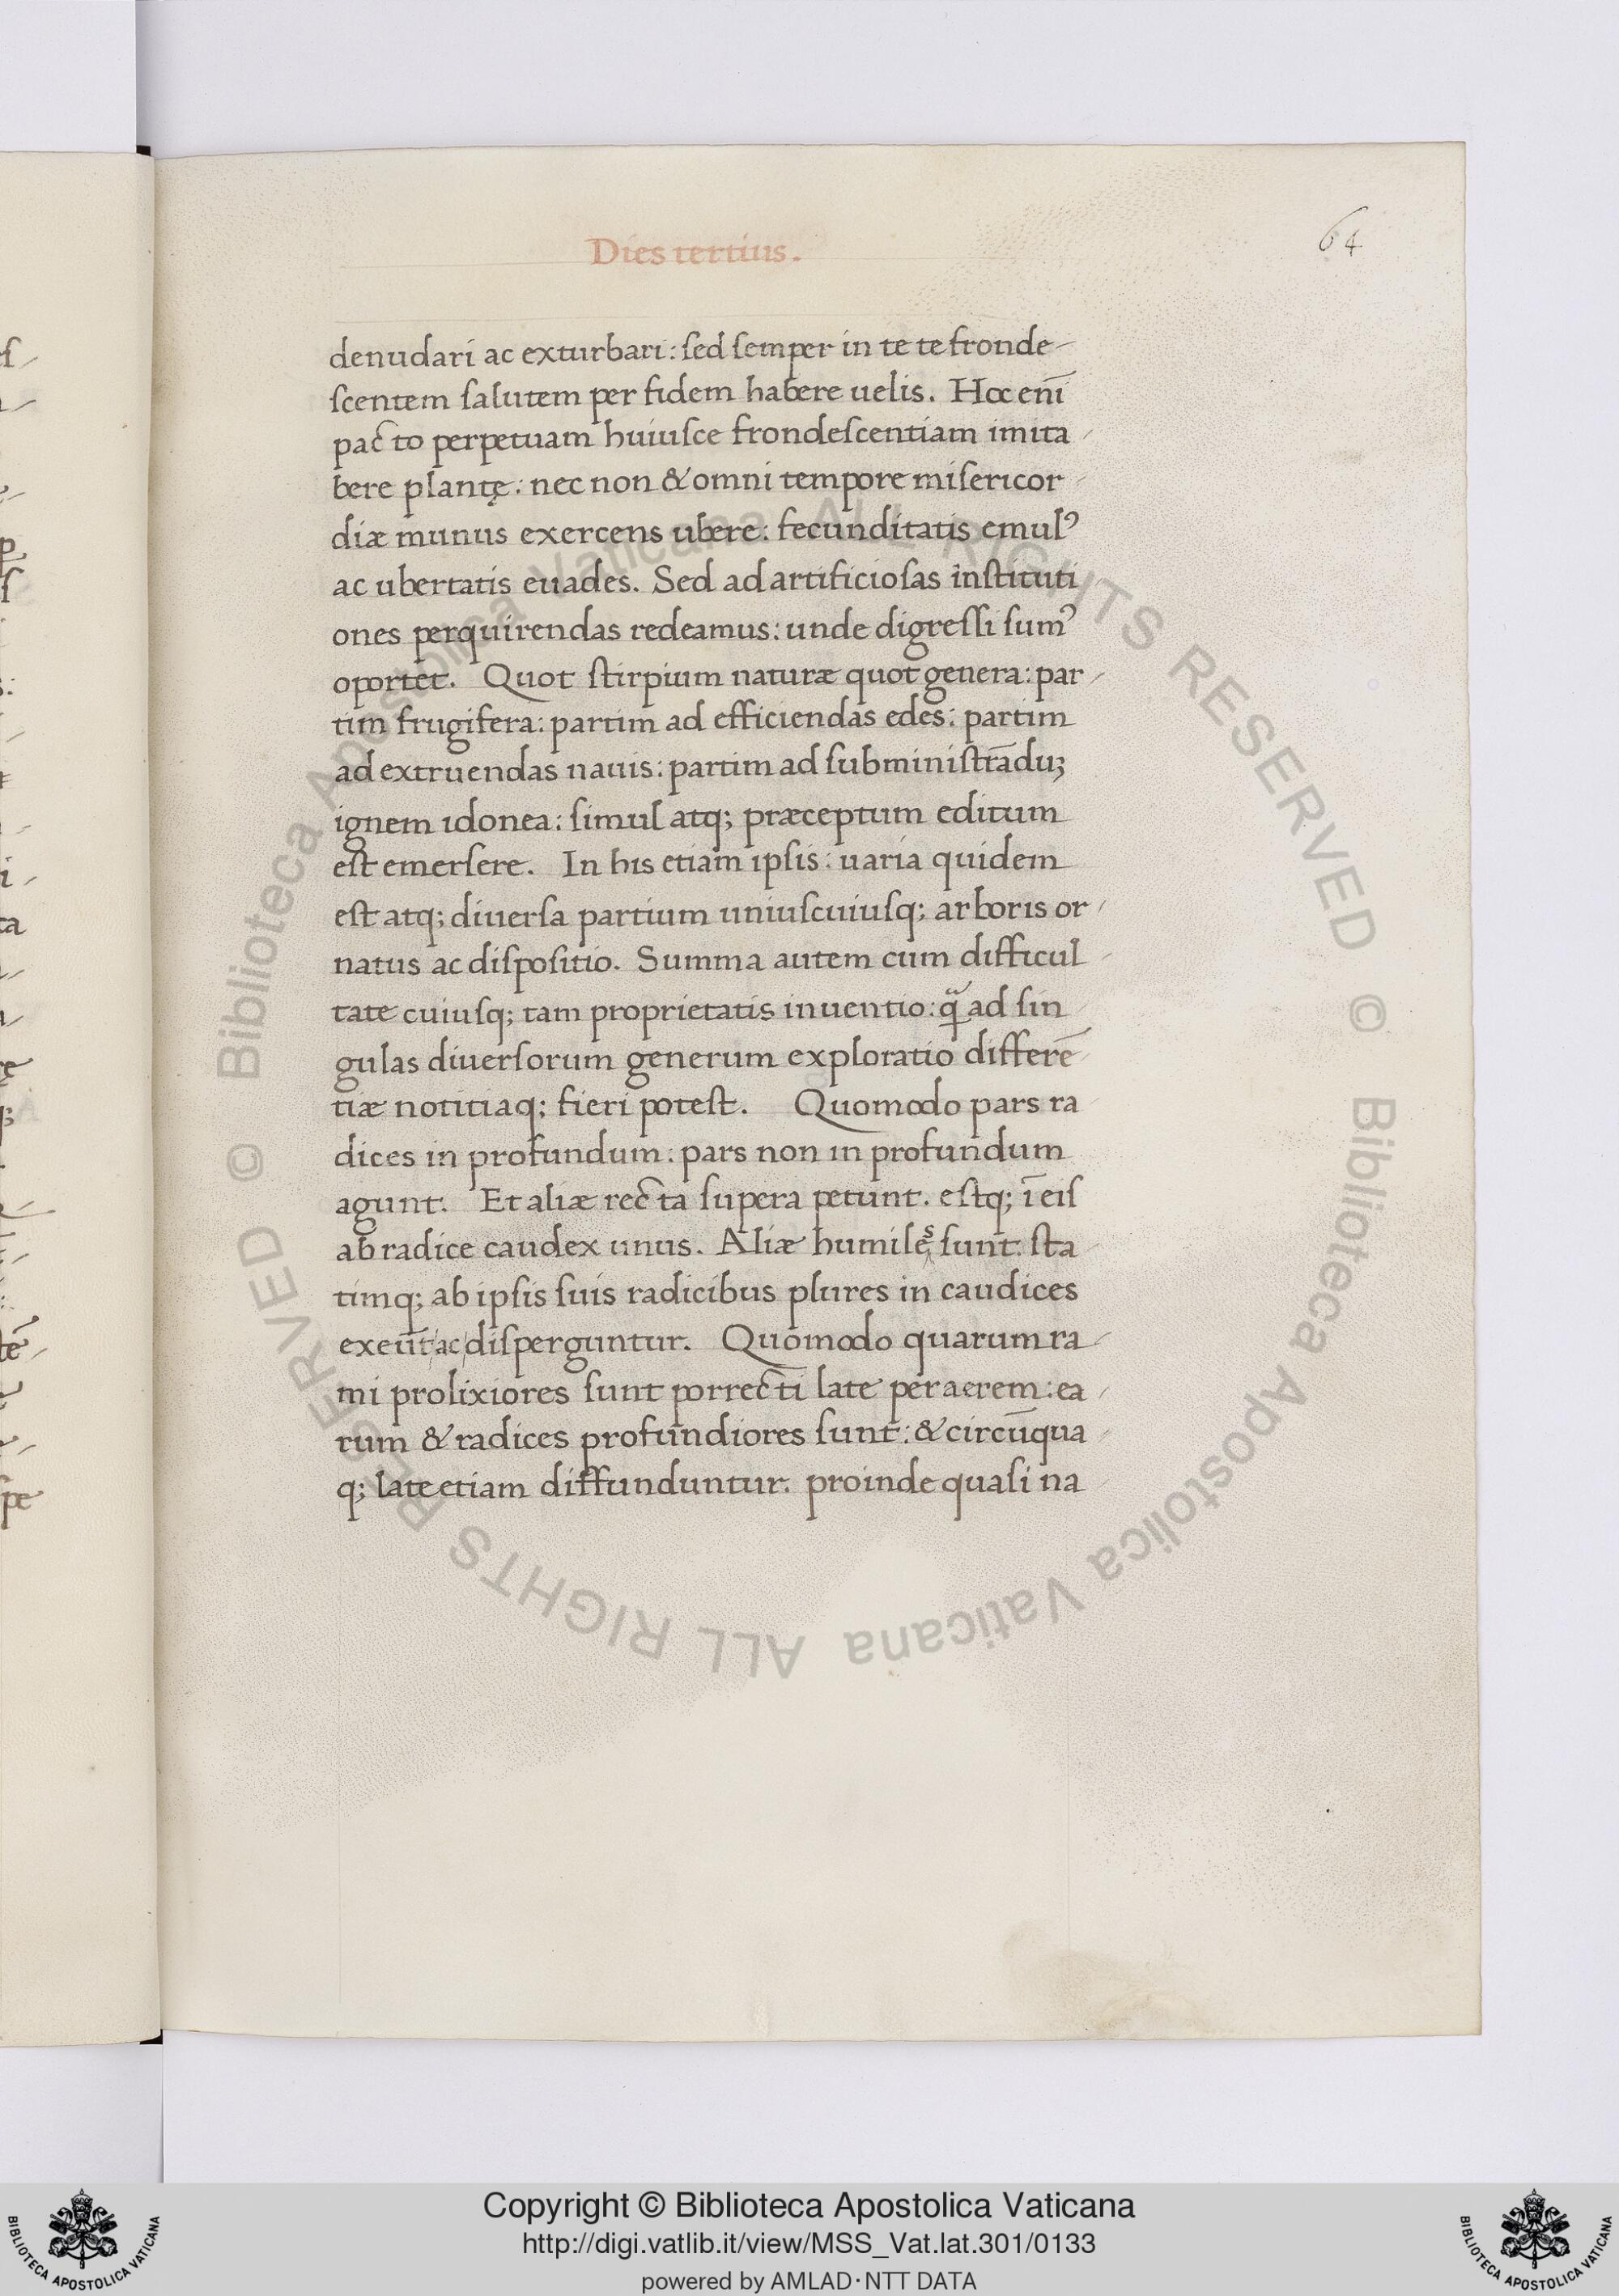 Dies tertius.
64
denudari ac exturbari: sed semper in te te fronde-
scentem salutem per fidem habere uelis. Hoc eni̅
pacto perpetuam huiusce frondescentiam imita-
bere plantę: nec non & omni tempore misericor-
diæ munus exercens ubere: fecunditatis emulꝰ
ac ubertatis euades. Sed ad artificiosas instituti-
ones perquirendas redeamus: unde digressi sumꝰ
oportet. Quot stirpium naturæ quot genera: par-
tim frugifera: partim ad efficiendas edes: partim
ad extruendas nauis: partim ad subministra̅duꝫ
ignem idonea: simul atq; præceptum editum
est emersere. In his etiam ipsis: uaria quidem
est atq; diuersa partium uniuscuiusq; arboris or-
natus ac dispositio. Summa autem cum difficul-
tate cuiusq; tam proprietatis inuentio: q̃ ad sin-
gulas diuersorum generum exploratio differe̅-
tiæ notitiaq; fieri potest. Quomodo pars ra-
dices in profundum: pars non in profundum
agunt. Et aliæ recta supera petunt. estq; i̅ eis
ab radice caudex unus. Aliæ humiles sunt: sta-
timq; ab ipsis suis radicibus plures in caudices
exeu̅t ac disperguntur. Quomodo quarum ra-
mi prolixiores sunt porrecti late per aerem: ea-
rum & radices profundiores sunt: & circu̅qua-
q; late etiam diffunduntur. proinde quasi na-
Copyright © Biblioteca Apostolica Vaticana
http://digi.vatlib.it/view/MSS_Vat.lat.301/0133
powered by AMLAD·NTT DATA
BIBLIOTECA APOSTOLICA VATICANA
BIBLIOTECA APOSTOLICA VATICANA
© Biblioteca Apostolica Vaticana ALL RIGHTS RESERVED © Biblioteca Apostolica Vaticana ALL RIGHTS RESERVED